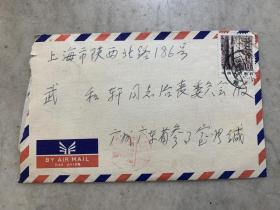 上海市陕西北路186号
武和轩同志治丧委员会收
广州广东省参事室沈缄
BY AIR MAIL
PAR AVION